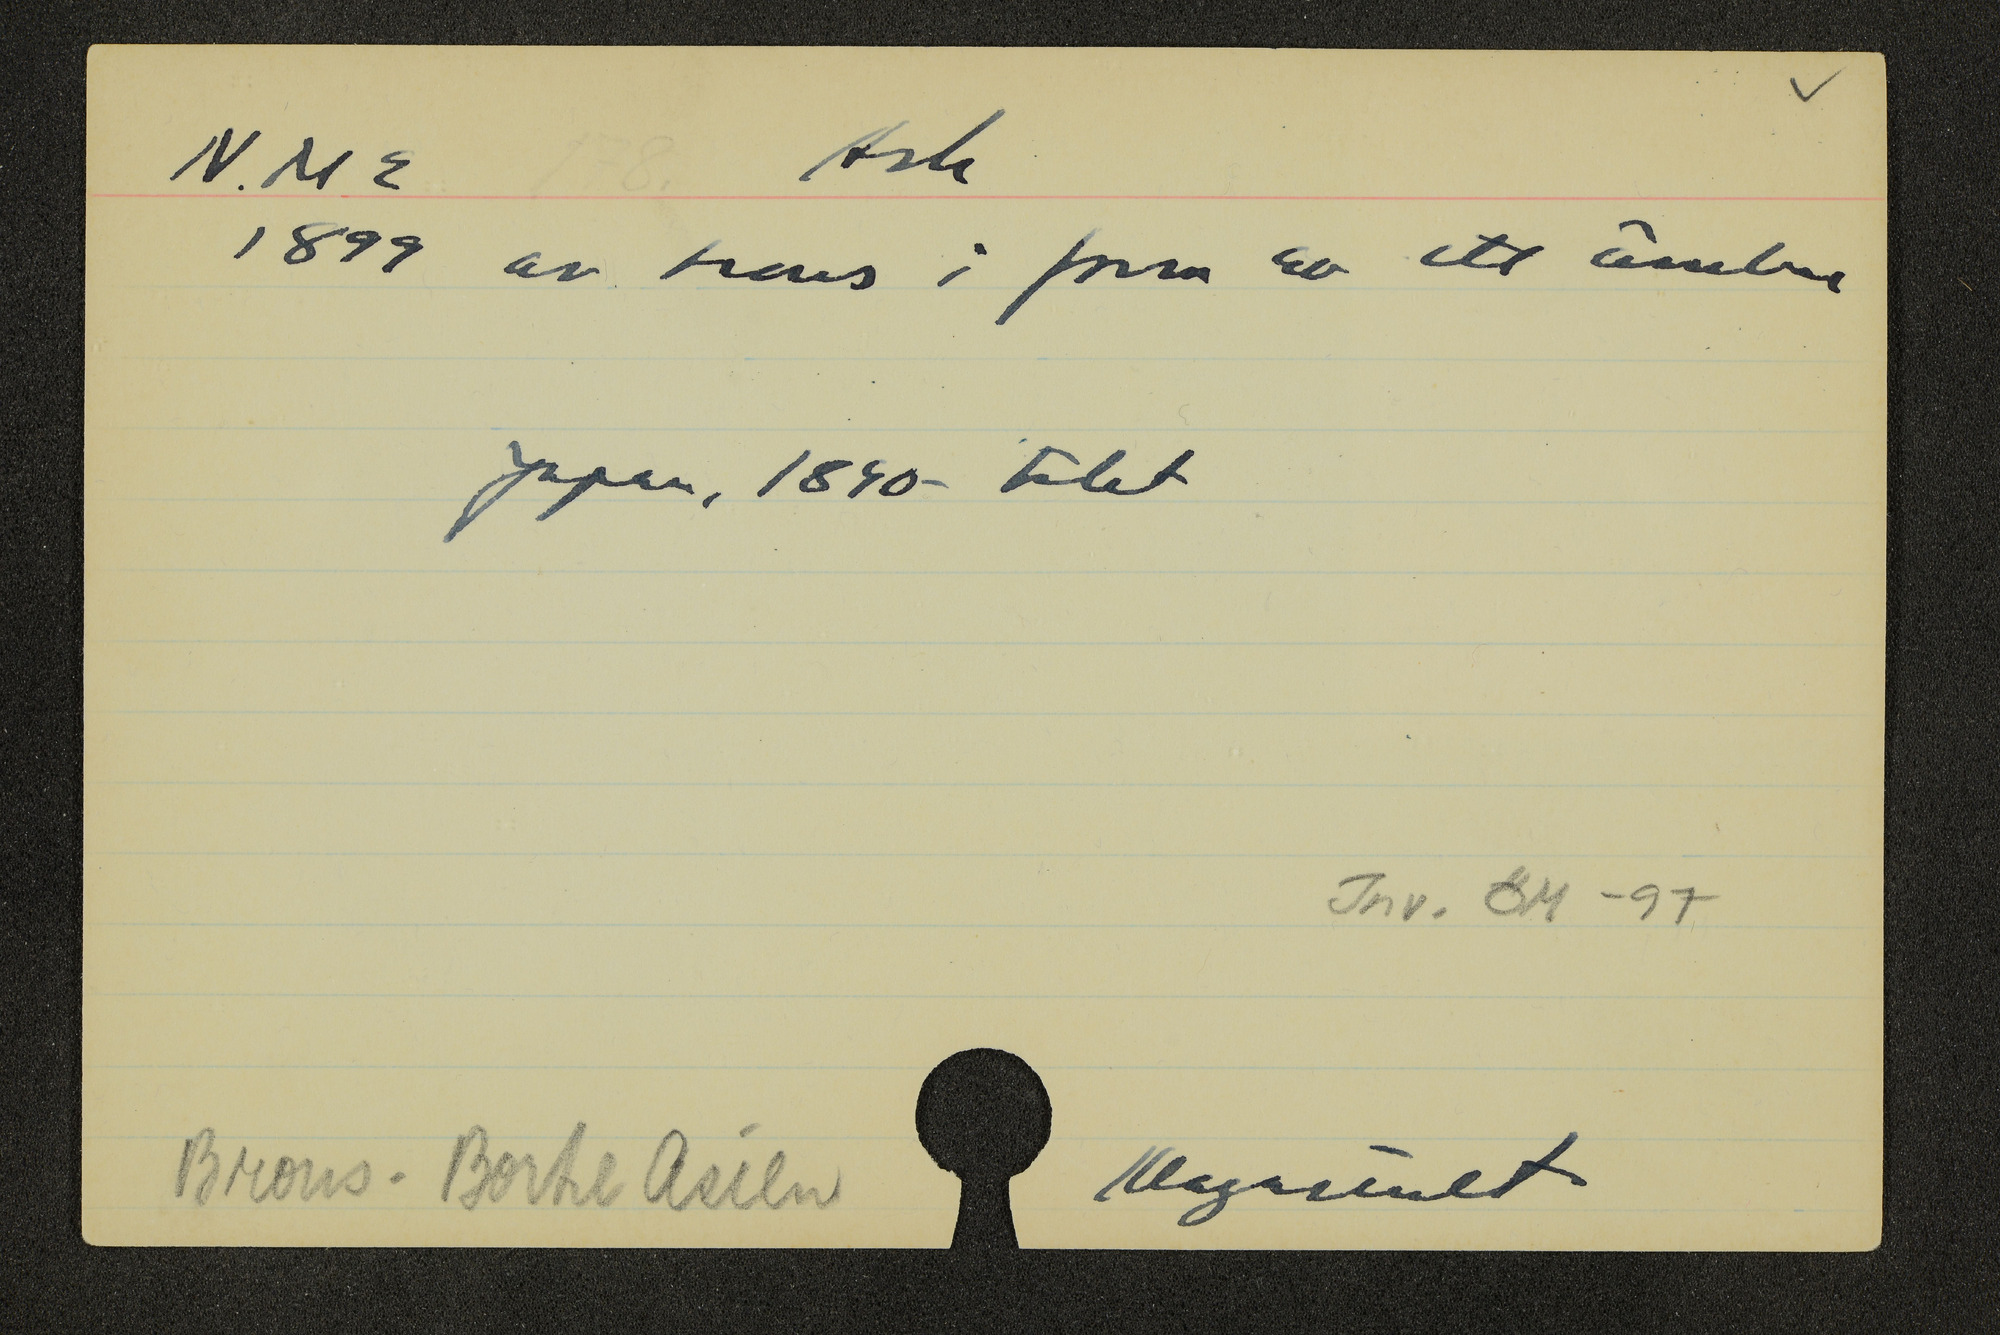 ✓
N.M E Ask
1899 av brons i form av ett ämbar
Japan, 1890-talet
Inv. ÖM -97
Brons. Bortre Asien Magasinet